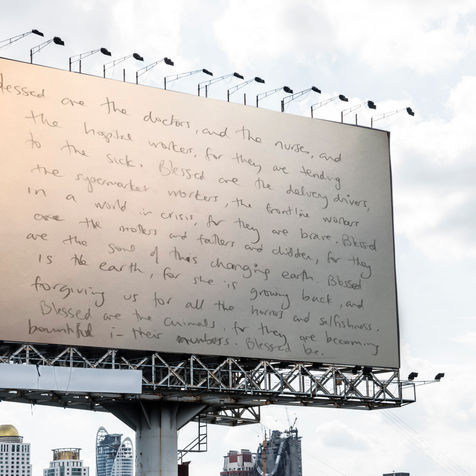 Blessed are the doctors, and the nurses, and
the hospital workers, for they are tending
to the sick. Blessed are the delivery drivers,
the supermarket workers, the frontline workers
in a world in crisis, for they are brave. Blessed
are the mothers and fathers and children, for they
are the soul of this changing earth. Blessed
is the earth, for she is growing back, and
forgiving us for all the horrors and selfishness.
Blessed are the animals, for they are becoming
bountiful in their numbers. Blessed be.